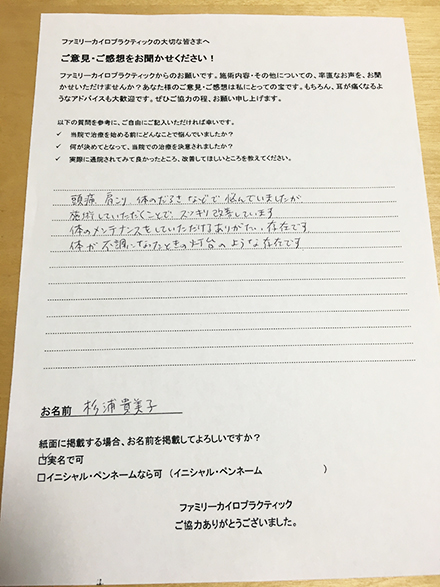 ファミリーカイロプラクティックの大切な皆さまへ
ご意見・ご感想をお聞かせください！
ファミリーカイロプラクティックからのお願いです。施術内容・その他についての、率直なお声を、お聞
かせいただけませんか？あなた様のご意見・ご感想は私にとっての宝です。もちろん、耳が痛くなるよ
うなアドバイスも大歓迎です。ぜひご協力の程、お願い申し上げます。
以下の質問を参考に、ご自由にご記入いただければ幸いです。
✓ 当院で治療を始める前にどんなことで悩んでいましたか？
✓ 何が決めてとなって、当院での治療を決意されましたか？
✓ 実際に通院されてみて良かったところ、改善してほしいところを教えてください。
頭痛、肩こり、体のだるさなどで悩んでいましたが
施術していただくことで、スッキリ改善しています
体のメンテナンスをしていただけるありがたい存在です。
体が不調になったときの灯台のような存在です
お名前 杉浦貴美子
紙面に掲載する場合、お名前を掲載してよろしいですか？
☑実名で可
□イニシャル・ペンネームなら可 （イニシャル・ペンネーム ）
ファミリーカイロプラクティック
ご協力ありがとうございました。